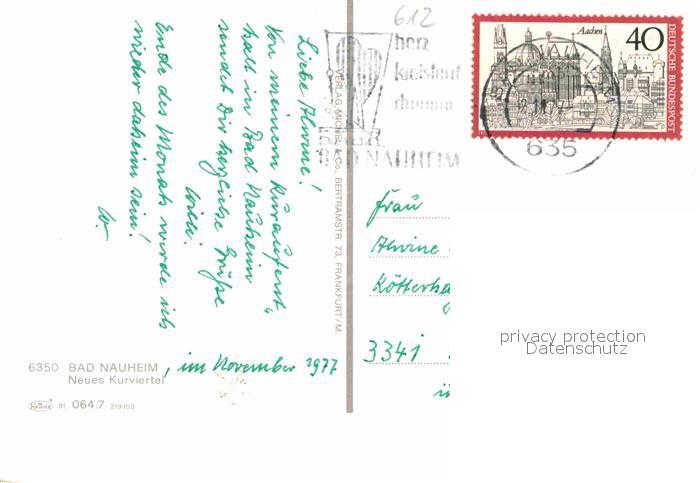 Liebe Alwine!
Von meinem Kuraufent-
halt in Bad Nauheim
sendet Dir herzliche Grüße
Ende des Monats werde ich
wieder daheim sein!
6350 BAD NAUHEIM, im November 1977
Neues Kurviertel
31. 064.7 219153
VERLAG MICHEL & Co., BERTRAMSTR. 73, FRANKFURT/M.
612
herz
kreislauf
rheuma
BAD NAUHEIM
635
Aachen
40
DEUTSCHE BUNDESPOST
Frau
Alwine
3341
privacy protection
Datenschutz